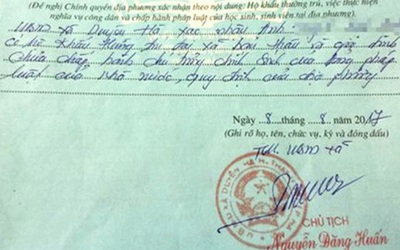 (Đề nghị Chính quyền địa phương xác nhận theo nội dung: Hộ khẩu thường trú, việc thực hiện
nghĩa vụ công dân và chấp hành pháp luật của học sinh, sinh viên tại địa phương).
UBND xã Duyên Hà, xác nhận Anh:
có hộ khẩu thường trú tại xã bản thân và gia đình
Chưa chấp hành chủ trương chính sách của Đảng pháp
luật của nhà nước, quy định của địa phương
Ngày 8 tháng 8 năm 2017
(Ghi rõ họ, tên, chức vụ, ký và đóng dấu)
TM. UBND Xã
CHỦ TỊCH
Nguyễn Đăng Huấn